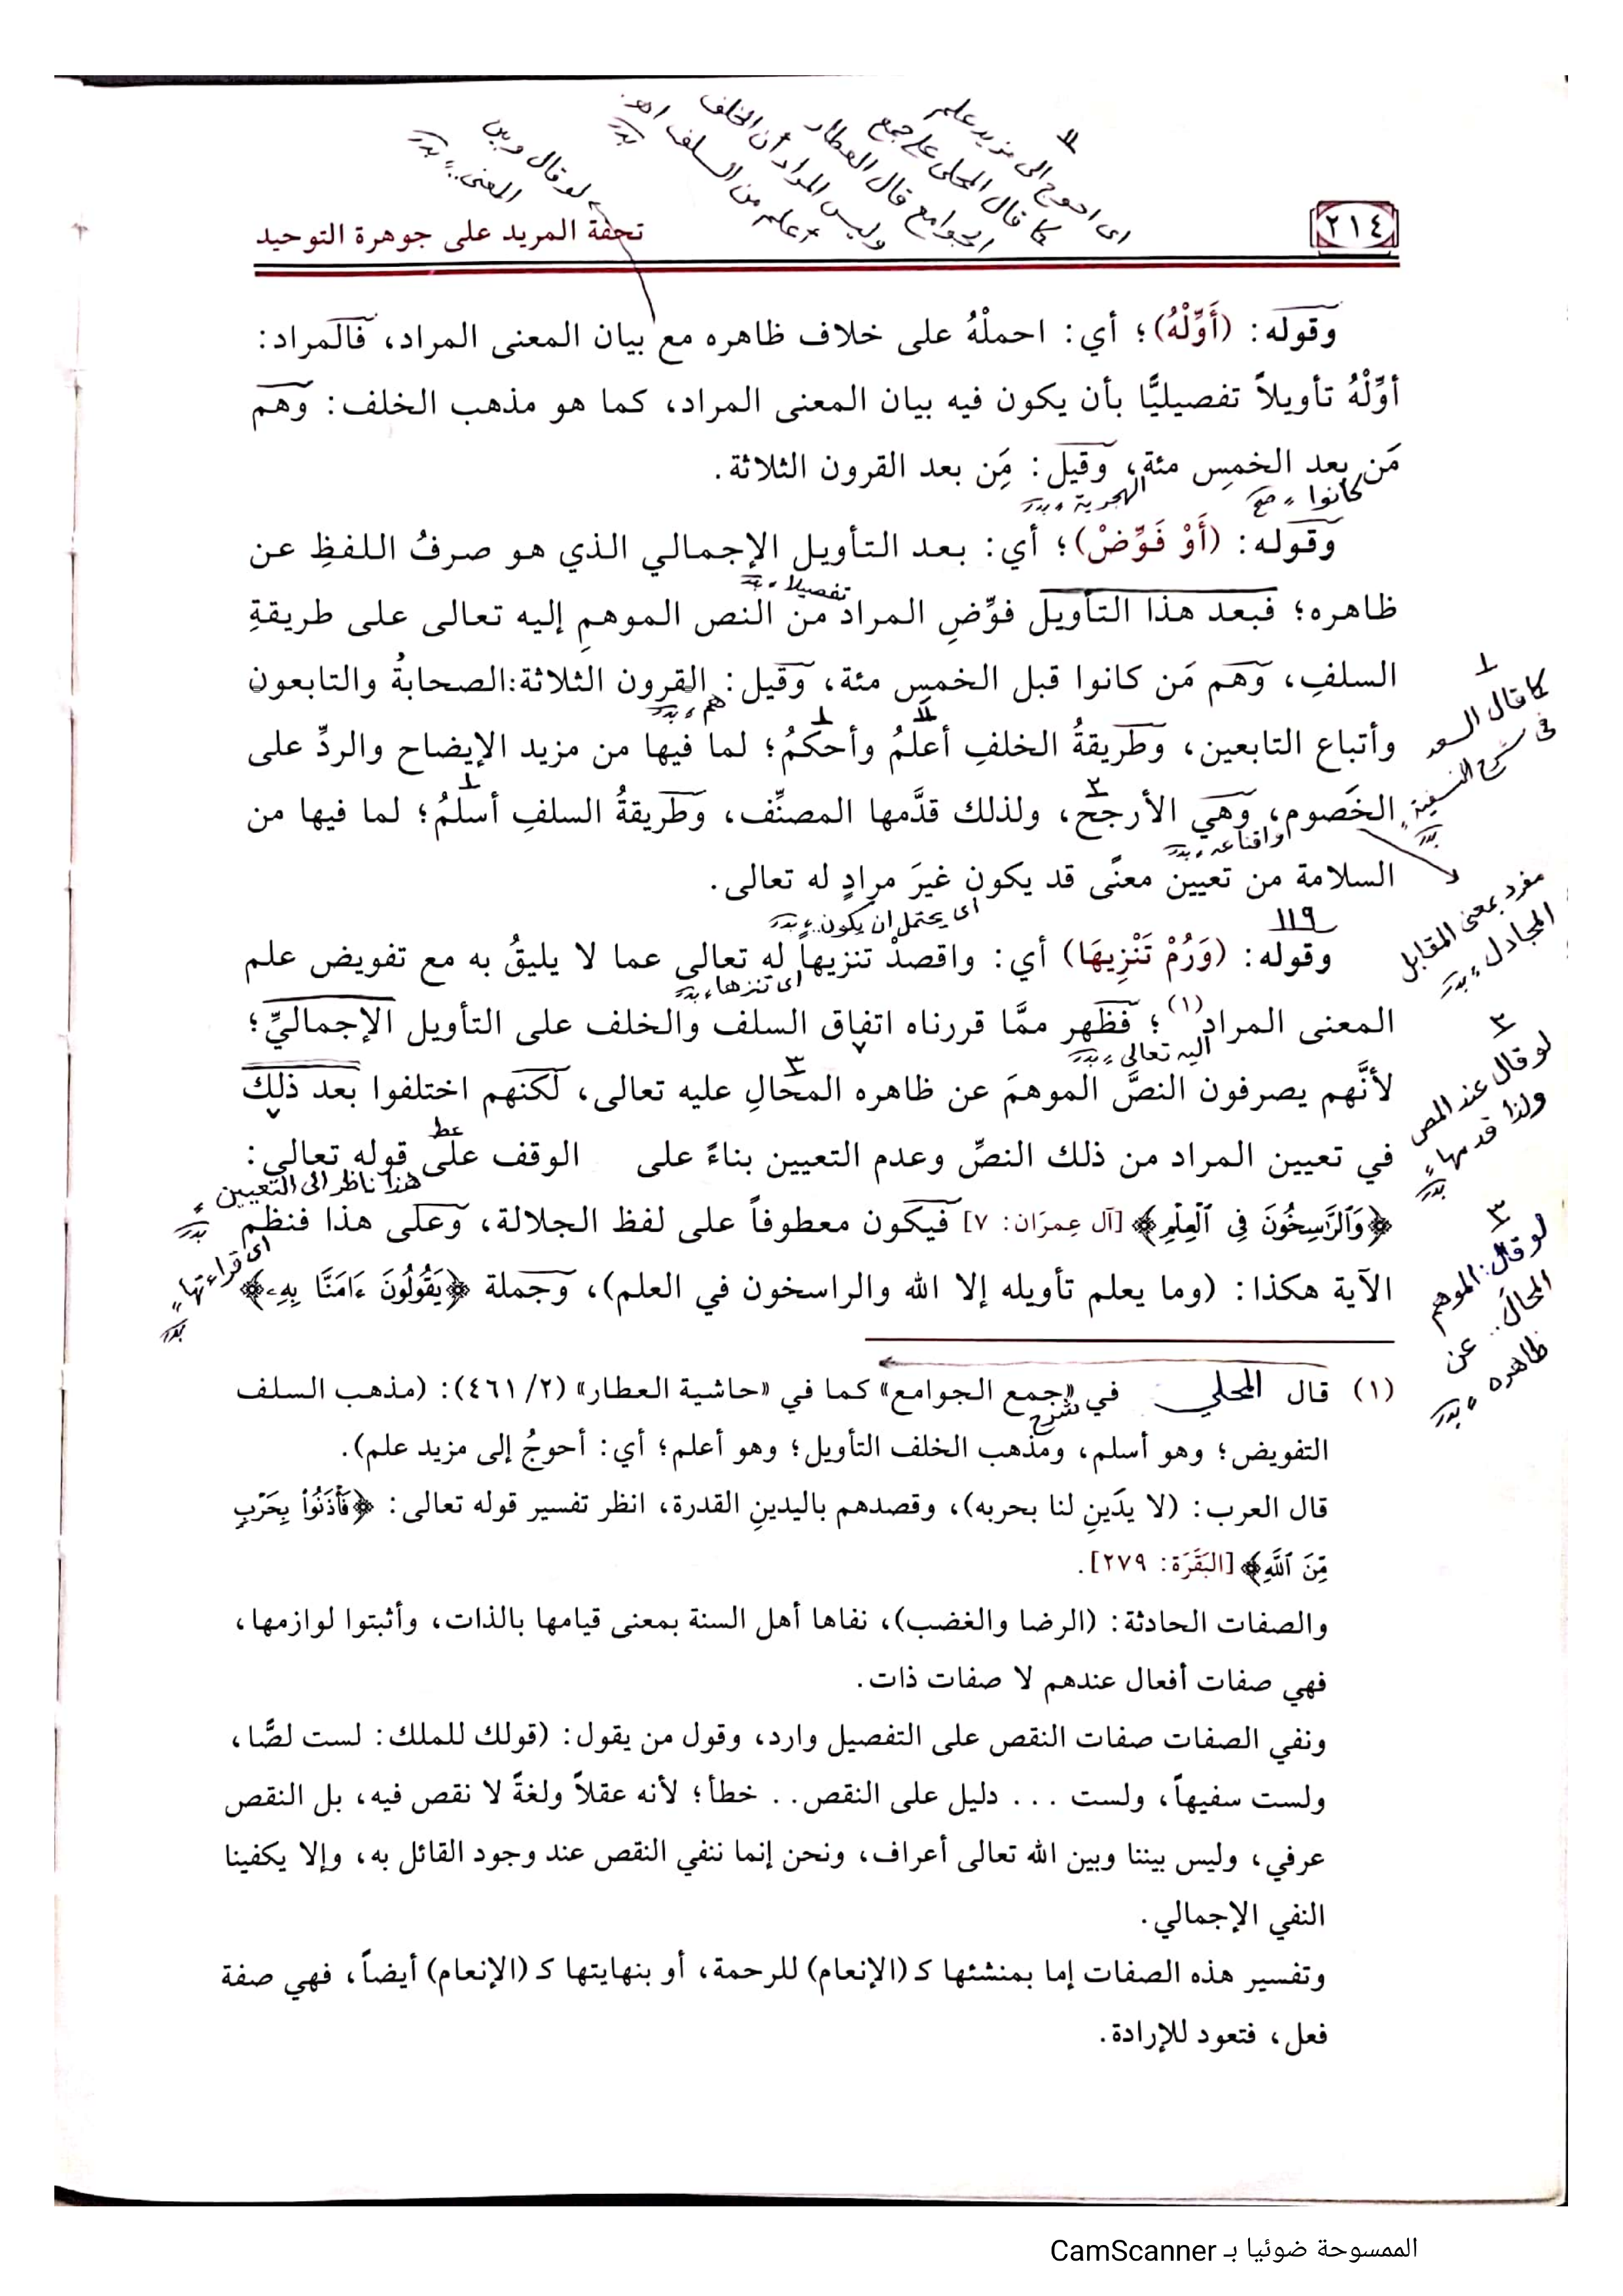 اى احوج الى مزيد علم
كما قال المحلى على جمع
الجوامع قال العطار
وليس المراد أن الخلف
اعلم من السلف اهـ
بدر
لو قال وبين
المعنى .. بدر
٢١٤
تحفة المريد على جوهرة التوحيد
وقوله: (أَوِّلْهُ)؛ أي: احملْهُ على خلاف ظاهره مع بيان المعنى المراد، فالمراد:
أوِّلْهُ تأويلاً تفصيليًّا بأن يكون فيه بيان المعنى المراد، كما هو مذهب الخلف: وهم
مَن بعد الخمسِ مئة، وقيل: مَِن بعد القرون الثلاثة.
كانوا صح
الهجرية بدر
وقوله: (أَوْ فَوِّضْ)؛ أي: بعد التأويل الإجمالي الذي هو صرفُ اللفظِ عن
تفصيلا بدر
ظاهره؛ فبعد هذا التأويل فوِّضِ المراد من النص الموهمِ إليه تعالى على طريقةِ
السلفِ، وهم مَن كانوا قبل الخمسِ مئة، وقيل: القرون الثلاثة: الصحابةُ والتابعون
هم بدر
وأتباع التابعين، وطريقةُ الخلفِ أعلمُ وأحكمُ؛ لما فيها من مزيد الإيضاح والردِّ على
الخصوم، وهي الأرجح، ولذلك قدَّمها المصنِّف، وطريقةُ السلفِ أسلمُ؛ لما فيها من
واقناعه بدر
السلامة من تعيين معنًى قد يكون غيرَ مرادٍ له تعالى.
اى يحتمل ان يكون .. بدر
١١٩
وقوله: (وَرُمْ تَنْزِيهَا) أي: واقصدْ تنزيهاً له تعالى عما لا يليقُ به مع تفويض علم
اى تنزها بدر
المعنى المراد(١)؛ فظهر ممَّا قررناه اتفاق السلف والخلف على التأويل الإجماليِّ؛
اليه تعالى بدر
لأنَّهم يصرفون النصَّ الموهمَ عن ظاهره المحالِ عليه تعالى، لكنهم اختلفوا بعد ذلك
عط
في تعيين المراد من ذلك النصِّ وعدم التعيين بناءً على الوقف على قوله تعالى:
هذا ناظر الى التعيين بدر
﴿وَٱلرَّٰسِخُونَ فِى ٱلْعِلْمِ﴾ [آل عِمرَان: ٧] فيكون معطوفاً على لفظ الجلالة، وعلى هذا فنظم
اى قراءتها بدر
الآية هكذا: (وما يعلم تأويله إلا الله والراسخون في العلم)، وجملة ﴿يَقُولُونَ ءَامَنَّا بِهِۦ﴾
كما قال السعد
فى شرح النسفية
بدر
مفرد بمعنى المقابل
المجادل بدر
٢
لو قال عند المص
ولذا قدمها
بدر
٣
لو قال: الموهم
المحالَ .. عن
ظاهره بدر
(١) قال المحلي في «جمع الجوامع» كما في «حاشية العطار» (٤٦١/٢): (مذهب السلف
شرح
التفويض؛ وهو أسلم، ومذهب الخلف التأويل؛ وهو أعلم؛ أي: أحوجُ إلى مزيد علم).
قال العرب: (لا يدَينِ لنا بحربه)، وقصدهم باليدينِ القدرة، انظر تفسير قوله تعالى: ﴿فَأْذَنُوا۟ بِحَرْبٍ
مِّنَ ٱللَّهِ﴾ [البَقَرَة: ٢٧٩].
والصفات الحادثة: (الرضا والغضب)، نفاها أهل السنة بمعنى قيامها بالذات، وأثبتوا لوازمها،
فهي صفات أفعال عندهم لا صفات ذات.
ونفي الصفات صفات النقص على التفصيل وارد، وقول من يقول: (قولك للملك: لست لصًّا،
ولست سفيهاً، ولست ... دليل على النقص.. خطأ؛ لأنه عقلاً ولغةً لا نقص فيه، بل النقص
عرفي، وليس بيننا وبين الله تعالى أعراف، ونحن إنما ننفي النقص عند وجود القائل به، وإلا يكفينا
النفي الإجمالي.
وتفسير هذه الصفات إما بمنشئها كـ (الإنعام) للرحمة، أو بنهايتها كـ (الإنعام) أيضاً، فهي صفة
فعل، فتعود للإرادة.
الممسوحة ضوئيا بـ CamScanner